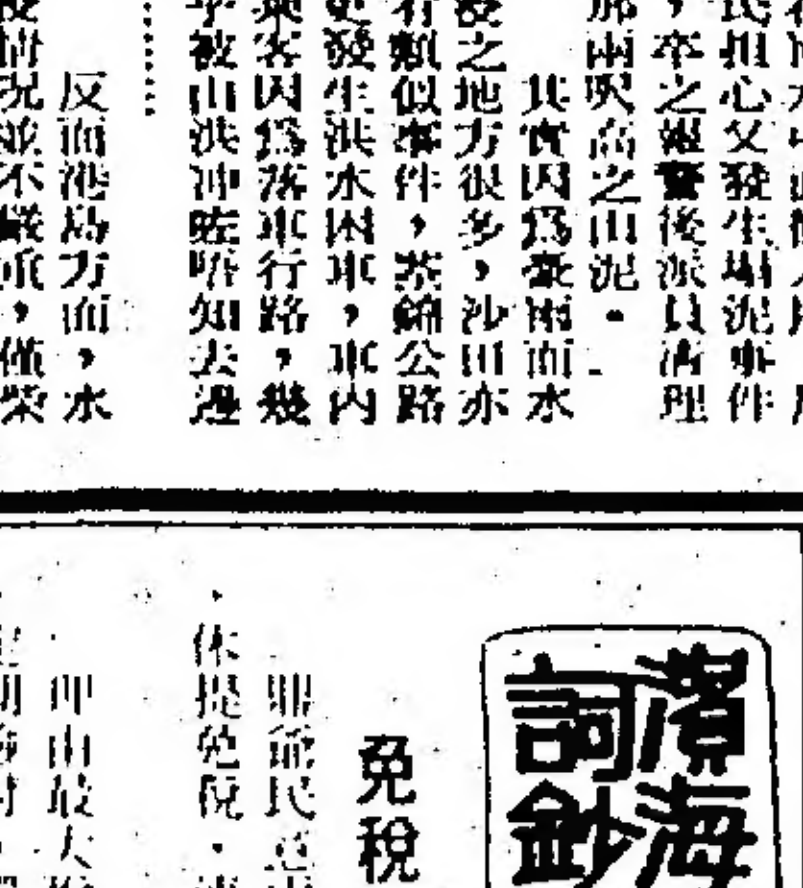 民担心又發生塌泥事件
，卒之報警後派員清理
那兩呎高之山泥。
其實因爲豪雨而水
浸之地方很多，沙田亦
有類似事件，荃錦公路
更發生洪水困車，車內
乘客因爲落車行路，幾
乎被山洪冲咗唔知去邊
……
反而港島方面，水
浸情况並不嚴重，僅柴
濱海
詞鈔
免稅
民意
休提免稅．
最大